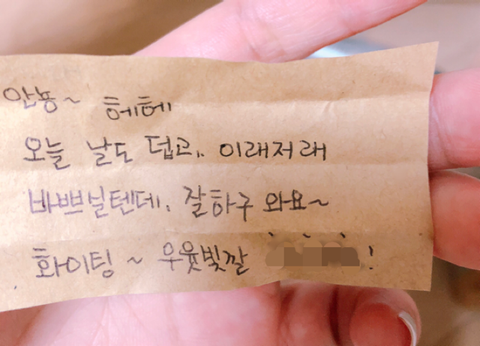 안뇽~ 헤헤
오늘 날도 덥고, 이래저래
바쁘실텐데, 잘하구 와요~
화이팅 ~ 우윳빛깔 !